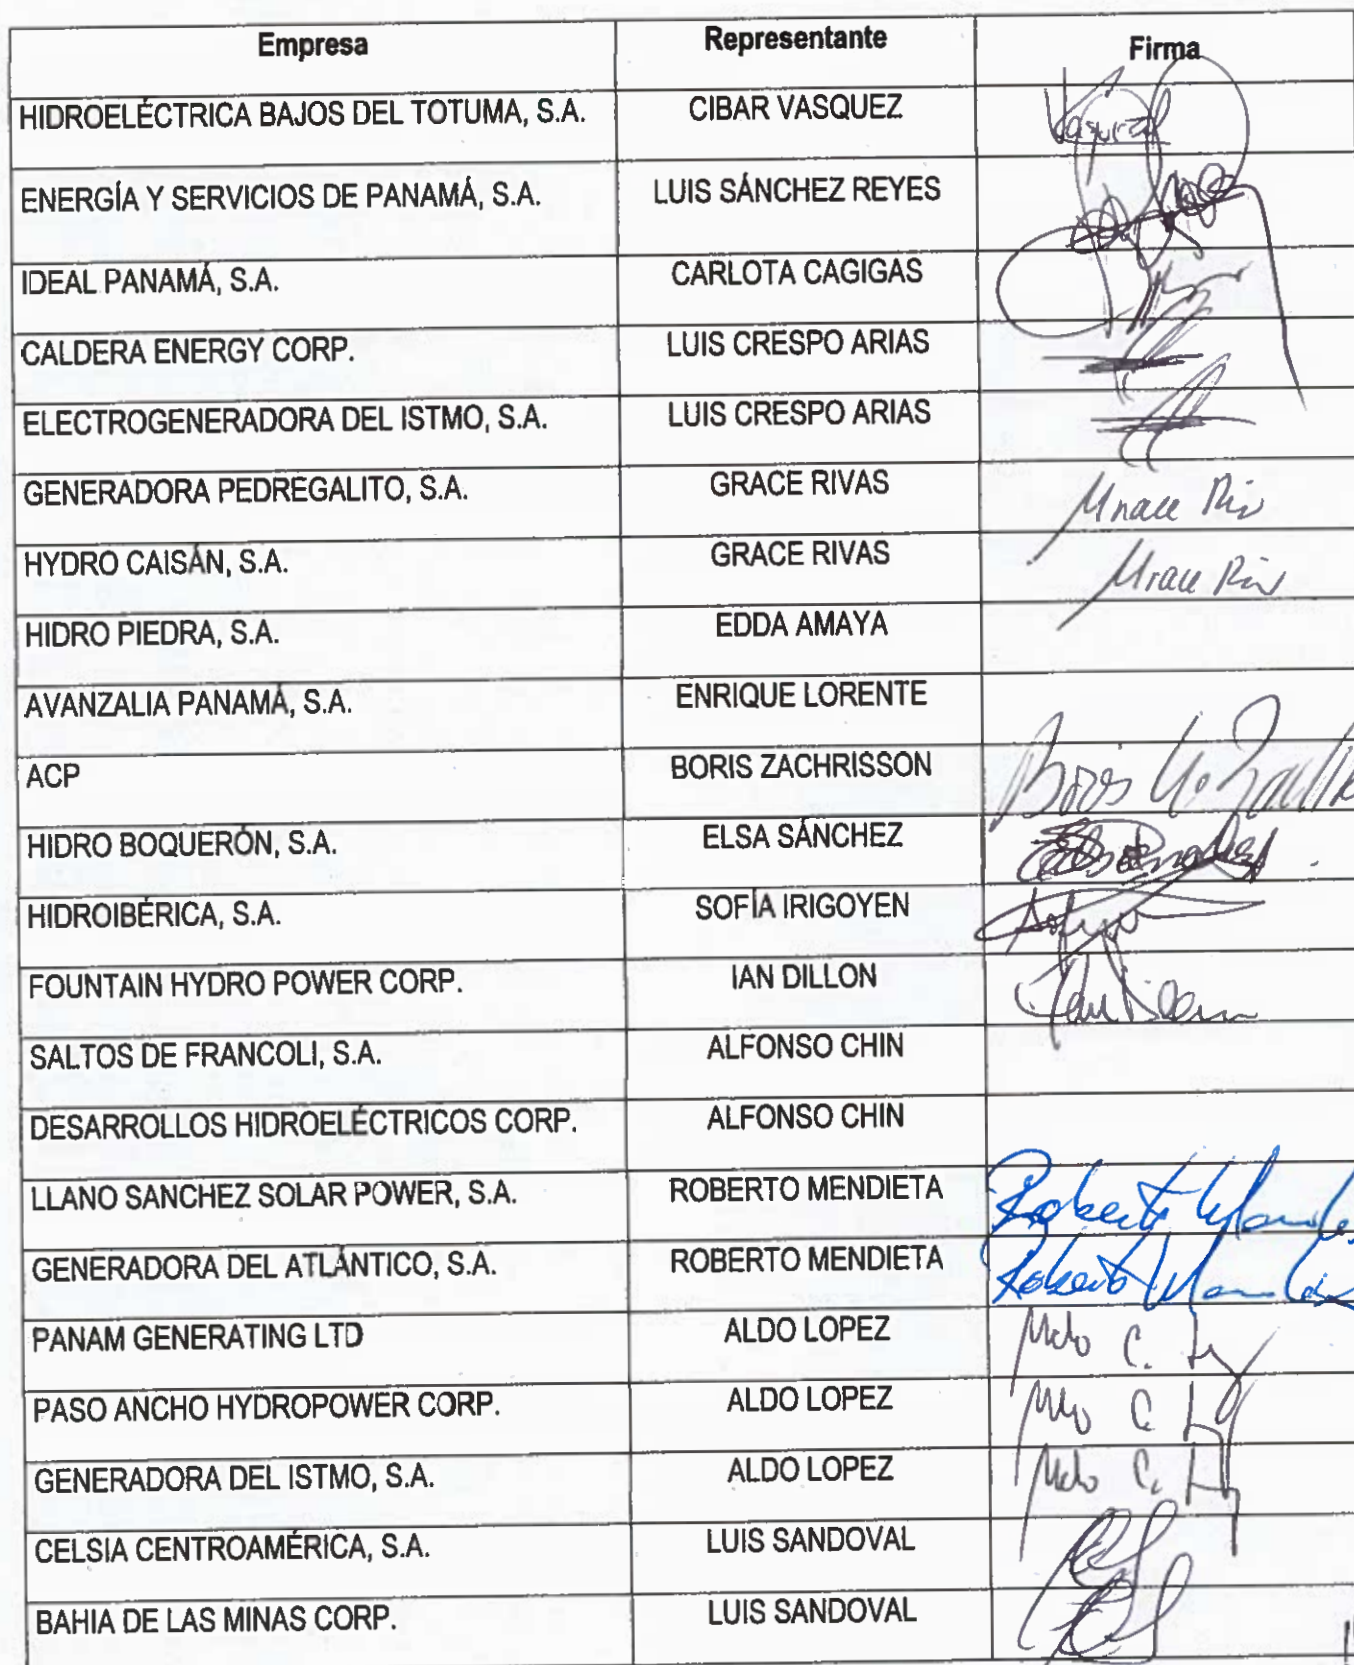 Empresa Representante Firma
HIDROELÉCTRICA BAJOS DEL TOTUMA, S.A. CIBAR VASQUEZ
ENERGÍA Y SERVICIOS DE PANAMÁ, S.A. LUIS SÁNCHEZ REYES
IDEAL PANAMÁ, S.A. CARLOTA CAGIGAS
CALDERA ENERGY CORP. LUIS CRESPO ARIAS
ELECTROGENERADORA DEL ISTMO, S.A. LUIS CRESPO ARIAS
GENERADORA PEDREGALITO, S.A. GRACE RIVAS
HYDRO CAISÁN, S.A. GRACE RIVAS
HIDRO PIEDRA, S.A. EDDA AMAYA
AVANZALIA PANAMÁ, S.A. ENRIQUE LORENTE
ACP BORIS ZACHRISSON
HIDRO BOQUERÓN, S.A. ELSA SÁNCHEZ
HIDROIBÉRICA, S.A. SOFÍA IRIGOYEN
FOUNTAIN HYDRO POWER CORP. IAN DILLON
SALTOS DE FRANCOLI, S.A. ALFONSO CHIN
DESARROLLOS HIDROELÉCTRICOS CORP. ALFONSO CHIN
LLANO SANCHEZ SOLAR POWER, S.A. ROBERTO MENDIETA Roberto
GENERADORA DEL ATLÁNTICO, S.A. ROBERTO MENDIETA Roberto
PANAM GENERATING LTD ALDO LOPEZ
PASO ANCHO HYDROPOWER CORP. ALDO LOPEZ
GENERADORA DEL ISTMO, S.A. ALDO LOPEZ
CELSIA CENTROAMÉRICA, S.A. LUIS SANDOVAL
BAHIA DE LAS MINAS CORP. LUIS SANDOVAL